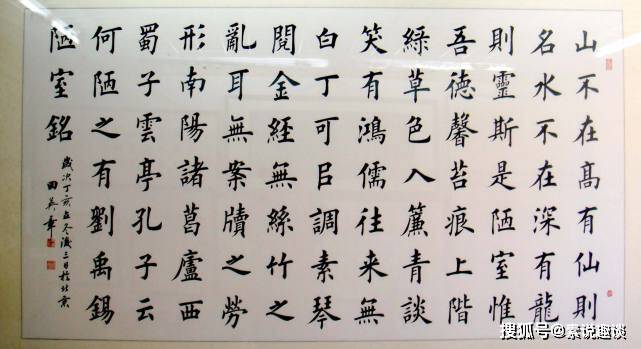 山不在髙有仙則
名水不在深有龍
則靈斯是陋室惟
吾德馨苔痕上階
綠草色入簾青談
笑有鴻儒往来無
白丁可㠯調素琴
閱金經無絲竹之
亂耳無案牘之勞
形南陽諸葛廬西
蜀子雲亭孔子云
何陋之有劉禹錫
陋室銘
歲次丁亥冬後三日於北京
田英章
搜狐号@素说趣谈